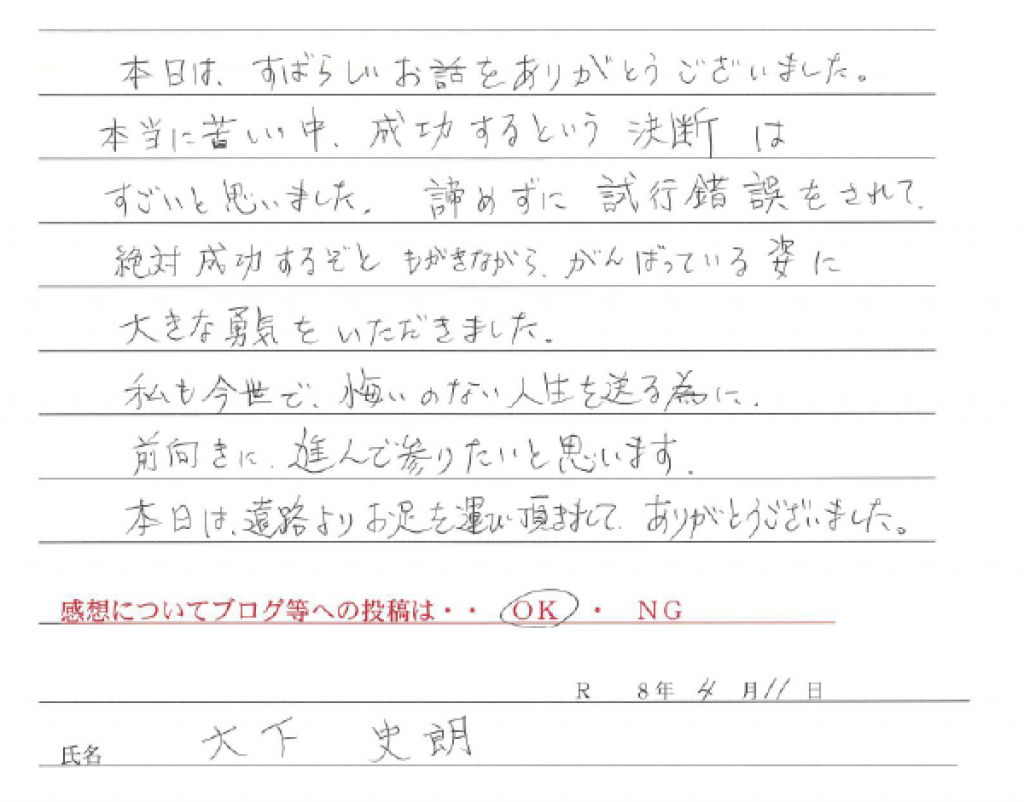 本日は、すばらしいお話をありがとうございました。
本当に苦しい中、成功するという決断は
すごいと思いました。諦めずに試行錯誤をされて、
絶対成功するぞともがきながら、がんばっている姿に
大きな勇気をいただきました。
私も今世で、悔いのない人生を送る為に、
前向きに、進んで参りたいと思います。
本日は、遠路よりお足を運び頂きまして、ありがとうございました。
感想についてブログ等への投稿は・・ OK ・ NG
R 8年 4月11日
氏名 大下 史朗